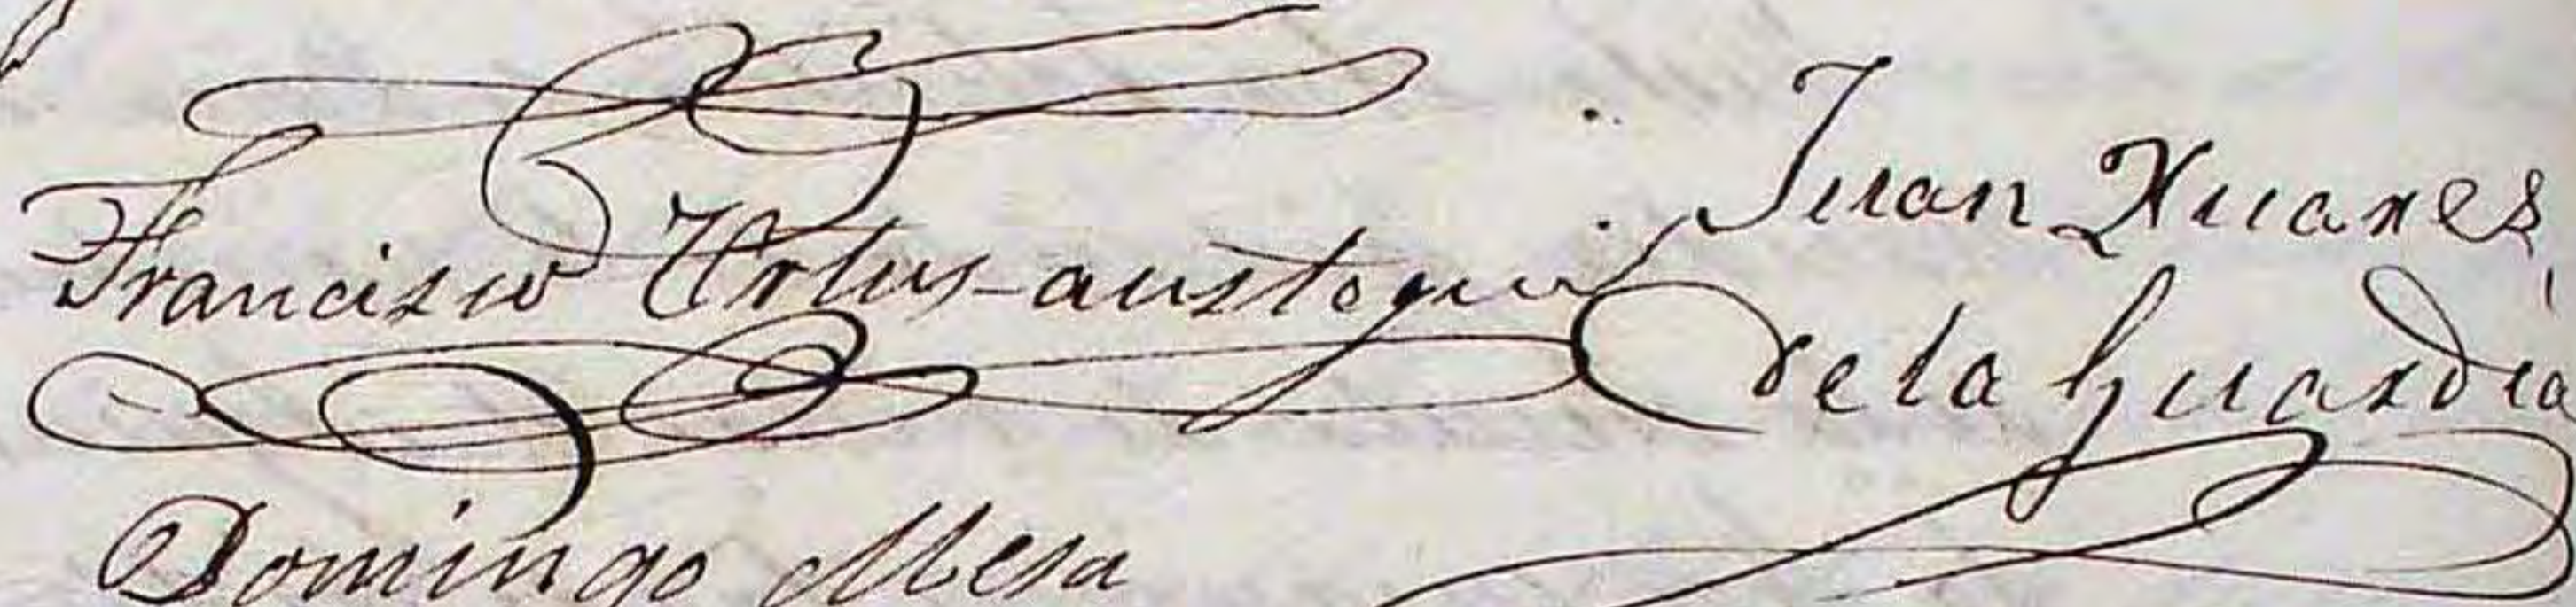 Francisco Urtus-austegui
Juan Xuares
de la Guardia
Domingo Mesa